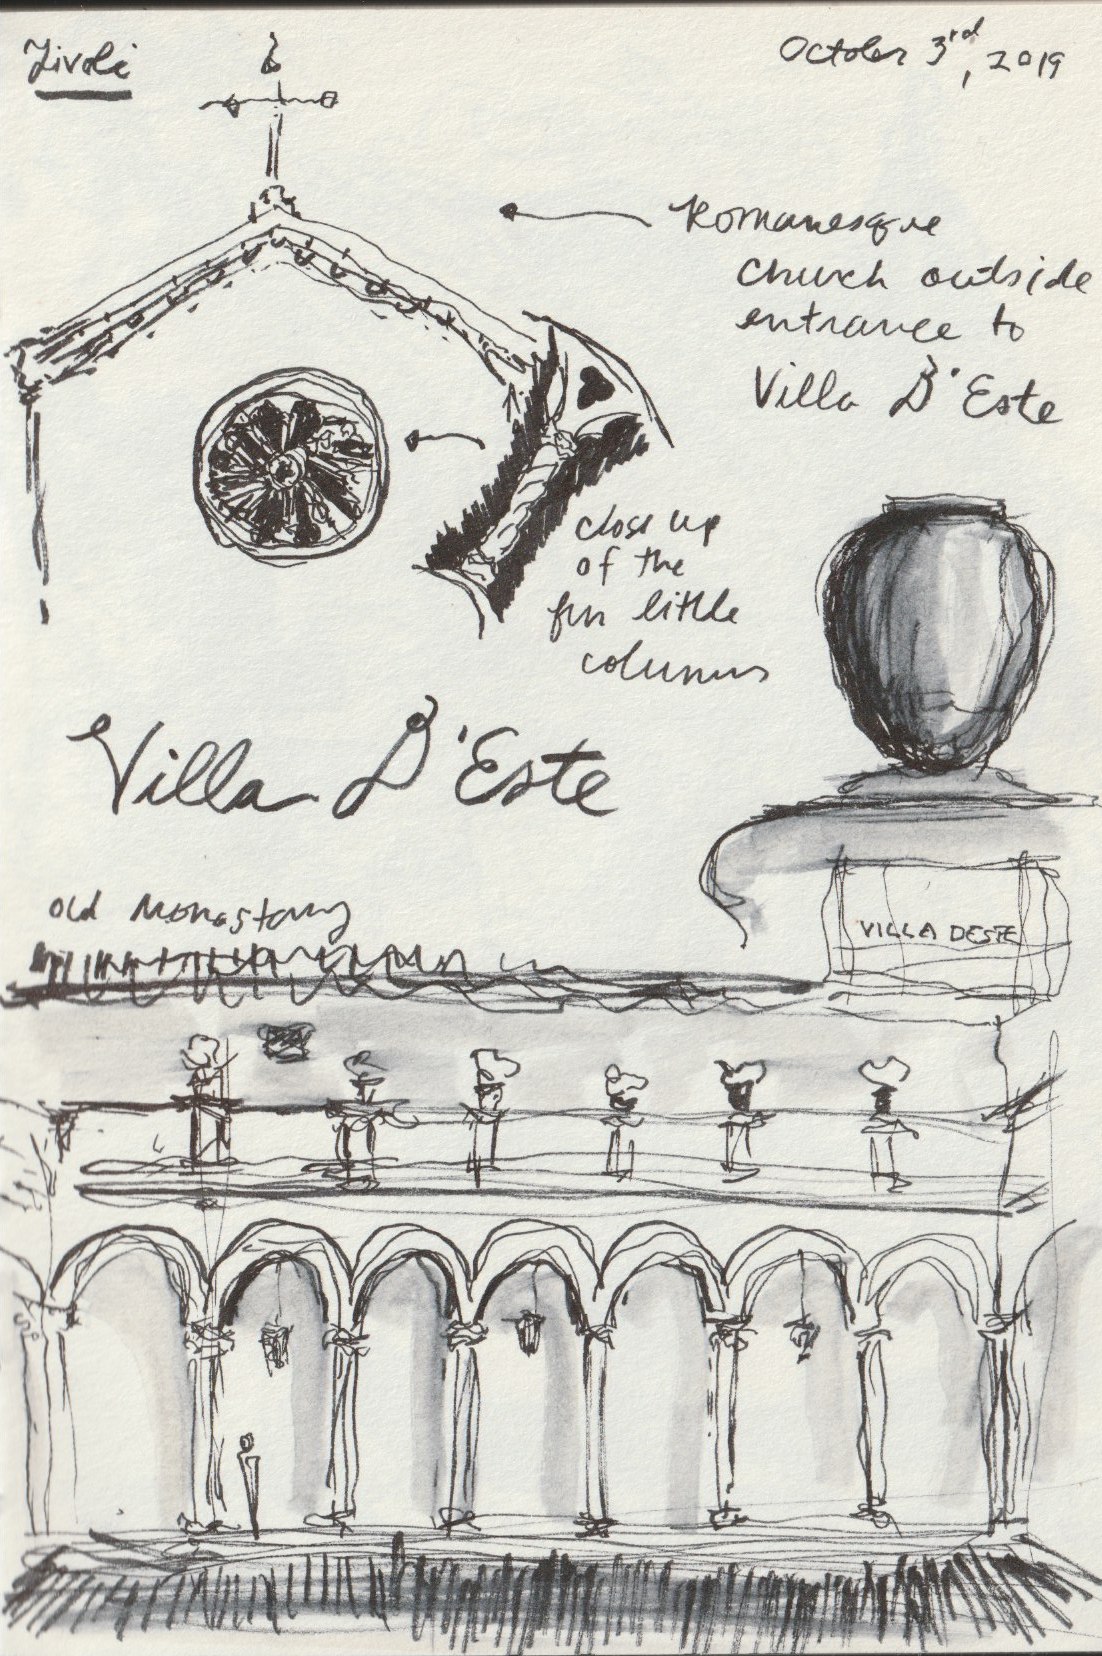 Tivoli
October 3rd, 2019
Romanesque
church outside
entrance to
Villa D'Este
close up
of the
fun little
columns
Villa D'Este
old monastary
VILLA DESTE